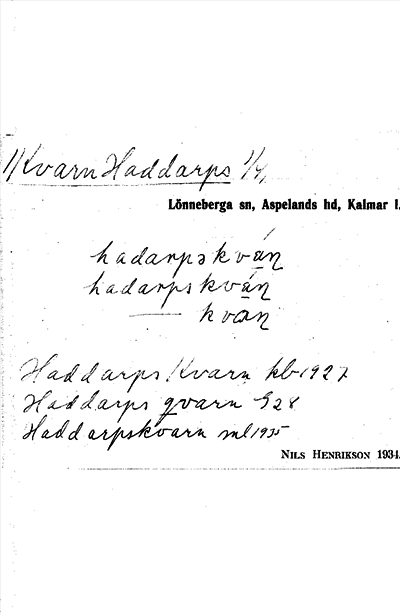 1/Kvarn Haddarps 1/4,
Lönneberga sn, Aspelands hd, Kalmar l.
hadarpskván
hadarpskván
— kvan
Haddarps Kvarn kb 1927
Haddarps qvarn G28
Haddarpskvarn ml 1935
NILS HENRIKSON 1934.